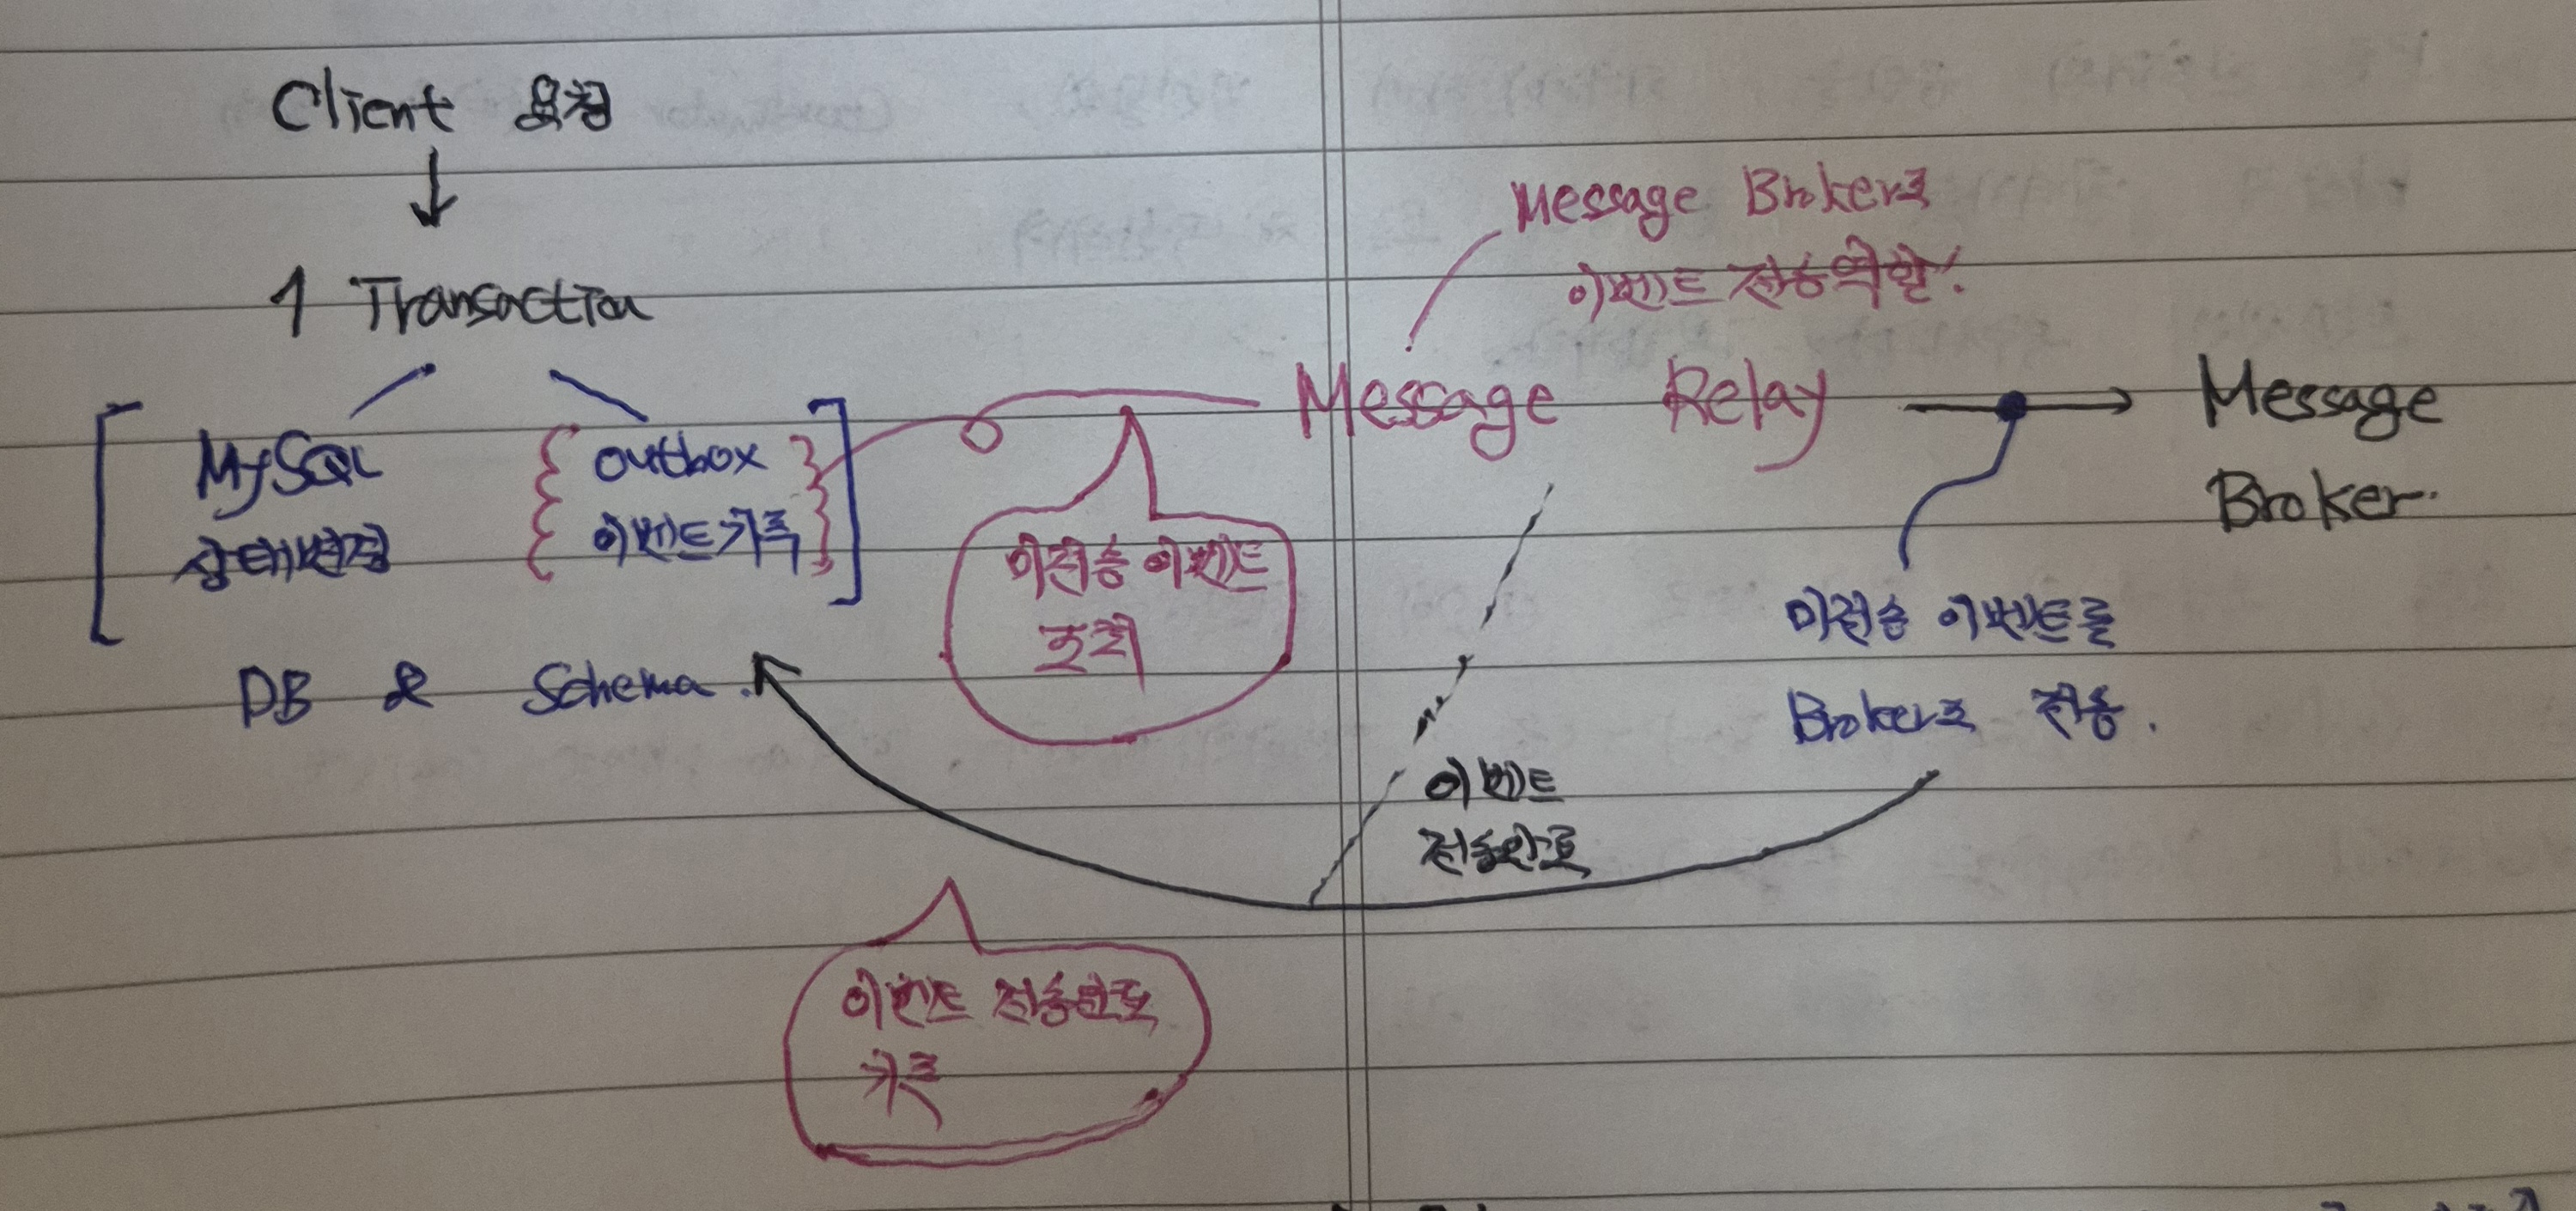 Client 요청
1 Transaction
MySQL
상태변경
outbox
이벤트기록
DB & Schema.
Message Broker로
이벤트 전송역할!
Message Relay
Message
Broker.
미전송 이벤트
조회
미전송 이벤트를
Broker로 전송.
이벤트
전송완료
이벤트 전송완료
기록